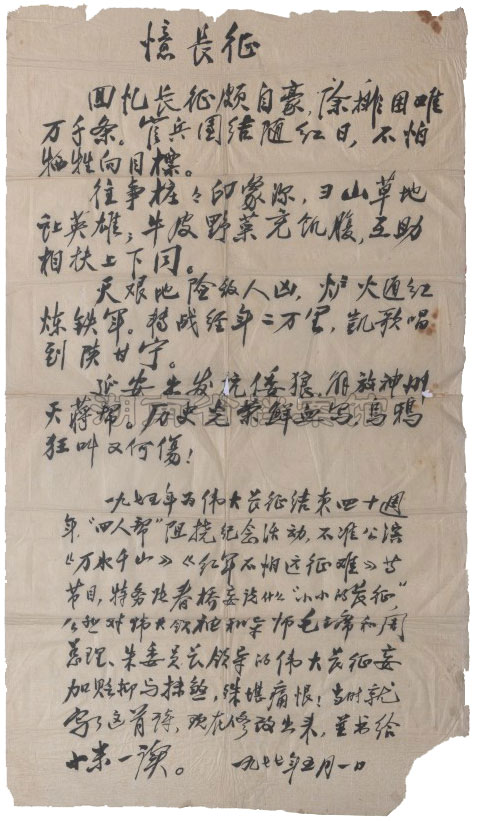 憶长征
回忆长征颇自豪,除排困难
万千条。官兵团结随红日,不怕
牺牲向目標。
往事桩々印象深,ヨ山草地
让英雄;牛皮野菜充饥腹,互助
相扶上下闩。
天艰地险敌人凶,炉火通红
炼铁军。转战经年二万里,凯歌唱
到陕甘宁。
延安出发抗倭狼,解放神州
灭蒋帮。历史光荣鲜血写,乌鸦
狂叫又何傷!
一九七五年为伟大长征结束四十週
年,“四人帮”阻挠纪念活动,不准公演
《万水千山》《红军不怕远征难》等
节目,特务张春桥妄说什么“小小的长征”
公然对伟大领袖和导师毛主席和周
总理、朱委员长领导的伟大长征妄
加贬抑与抹煞,殊堪痛恨!当时就
写了这首诗,现在修改出来,并书给
小末一读。 一九七七年五月一日